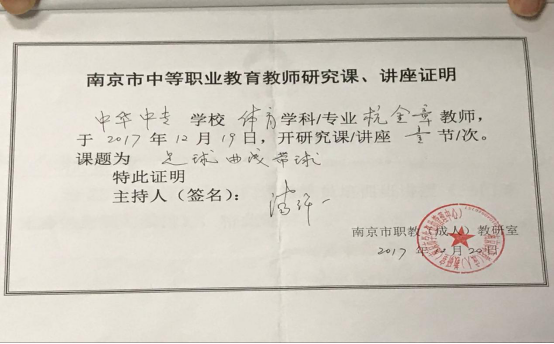 南京市中等职业教育教师研究课、讲座证明
中华中专 学校 体育 学科/专业 杭金章 教师，
于 2017 年 12 月 19 日，开研究课/讲座 壹 节/次。
课题为 足球曲线带球
特此证明
主持人（签名）：
南京市职教（成人）教研室
2017 年 12 月 20 日